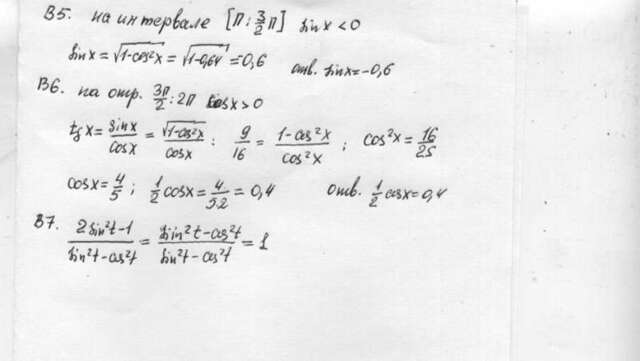 В5. на интервале [П; 3/2 П] sin x < 0
sin x = √(1-cos²x) = √(1-0,64) = 0,6 отв. sin x = -0,6
В6. на отр. 3П/2 : 2П cos x > 0
tg x = sin x/cos x = √(1-cos²x)/cos x ; 9/16 = (1-cos²x)/cos²x ; cos²x = 16/25
cos x = 4/5 ; 1/2 cos x = 4/5·2 = 0,4 отв. 1/2 cos x = 0,4
В7. (2sin²t-1)/(sin²t-cos²t) = (sin²t-cos²t)/(sin²t-cos²t) = 1